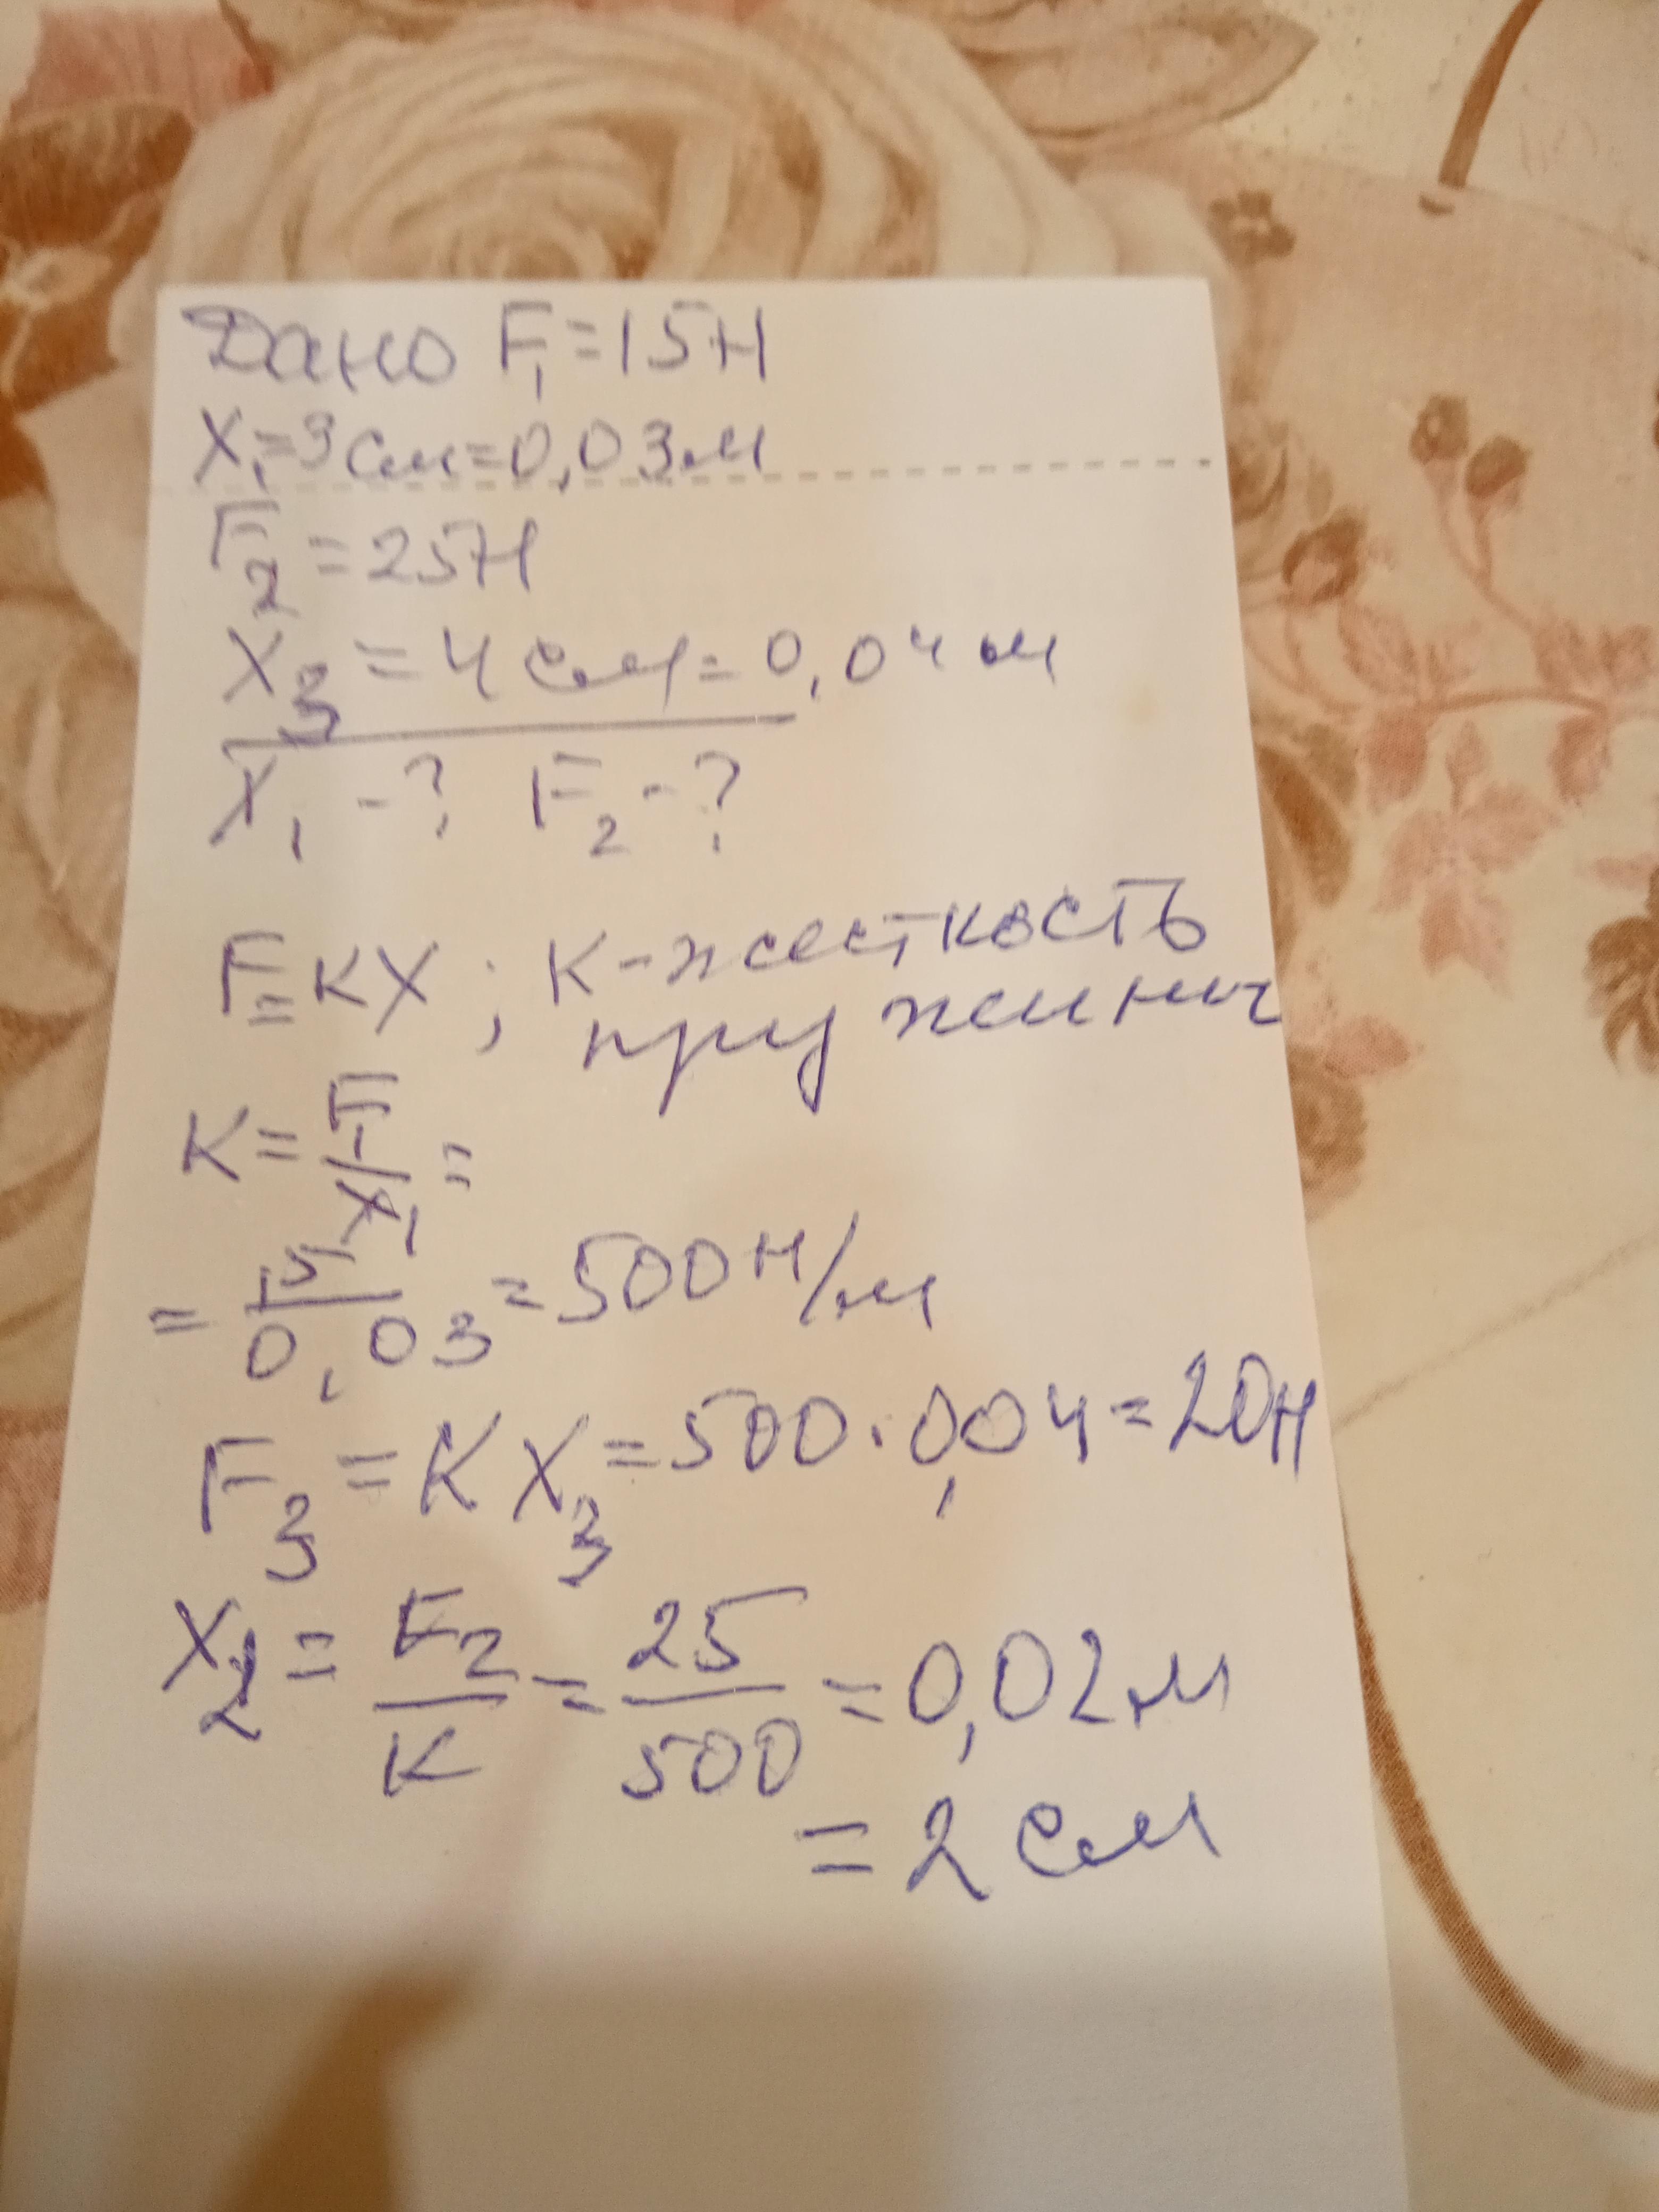 Дано F₁=15Н
X₁=3см=0,03м
F₂=25Н
X₃=4см=0,04м
X₁-? F₂-?
F=КХ; К-жесткость
пружины
К=F₁/X₁=
=15/0,03=500Н/м
F₃=КX₃=500·0,04=20Н
X₂=F₂/К=25/500=0,02м
=2см